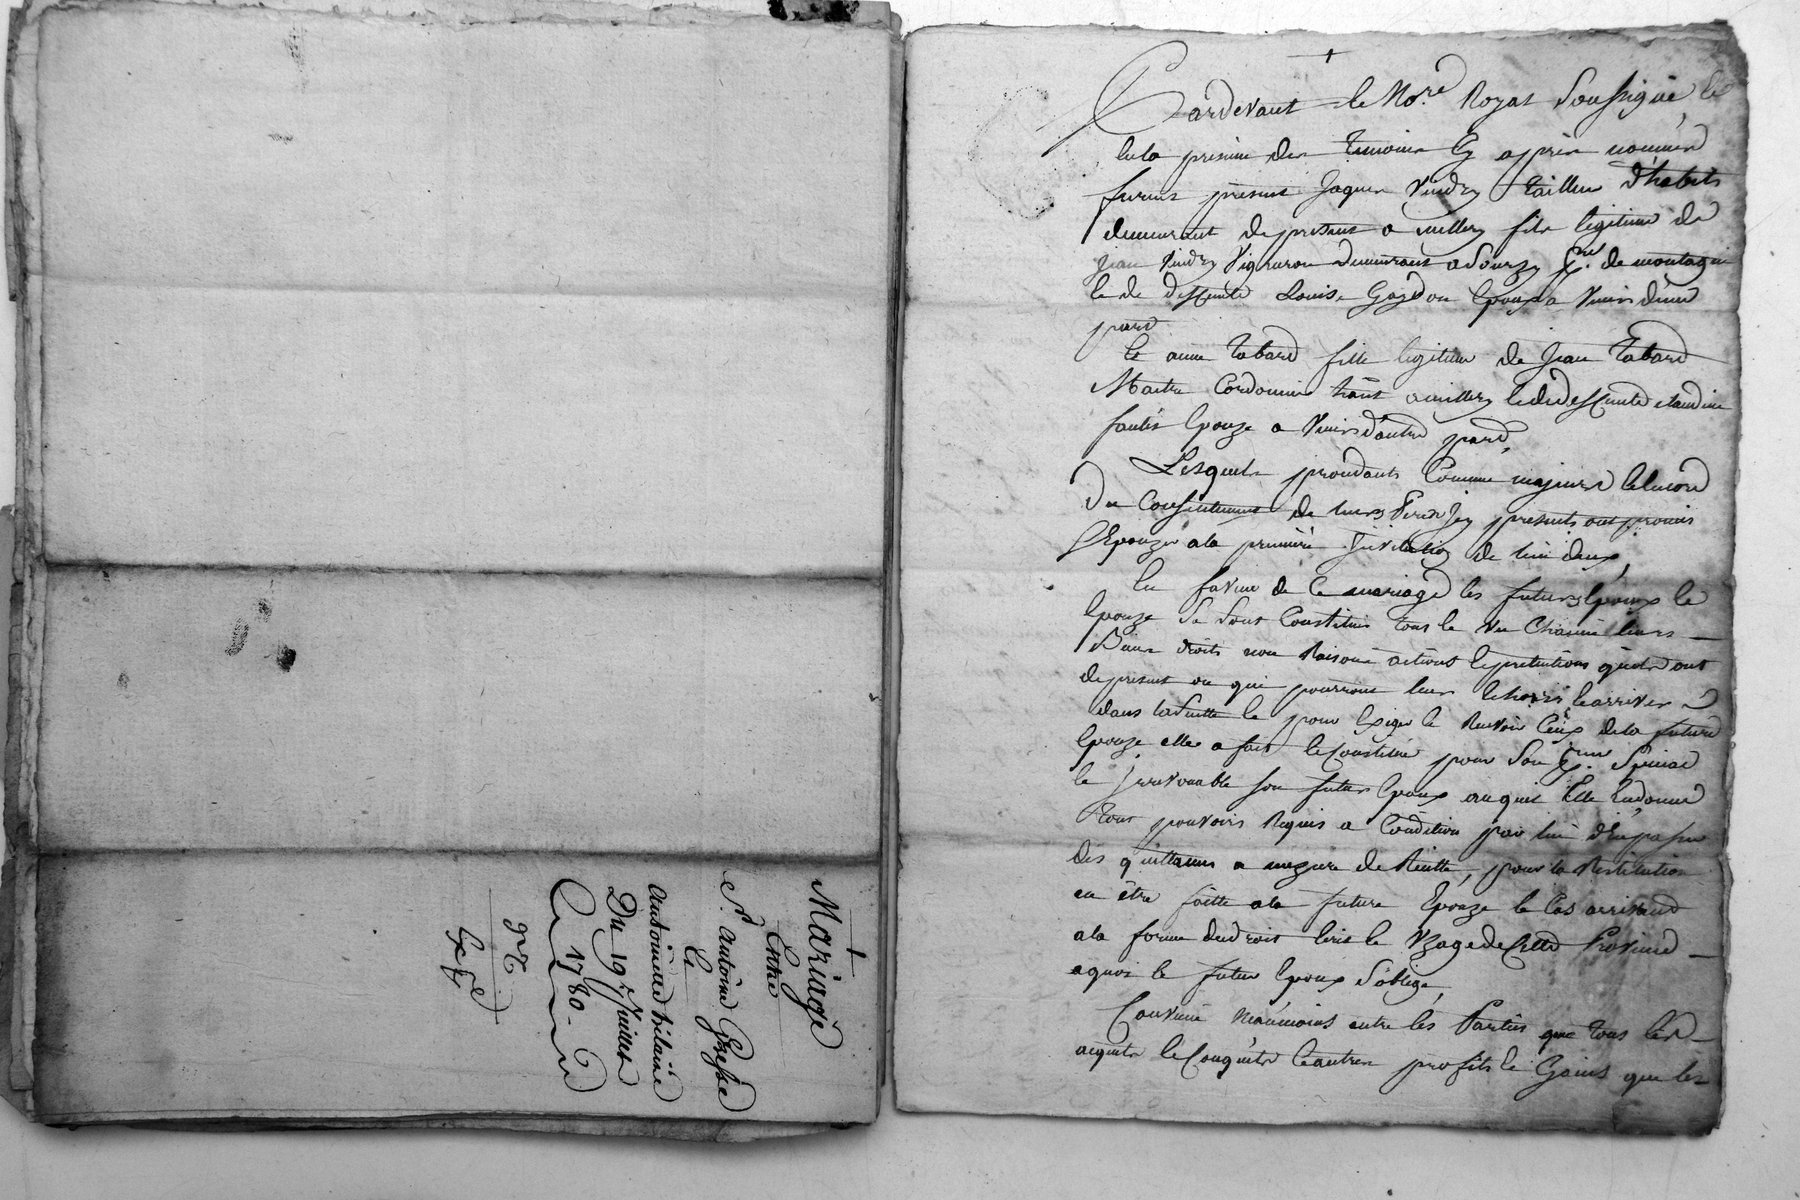 Mariage
Entre
Sr. antoine
Et
antoinette hilaire
Du 19e Juillet
1780
Exp.é
+
Pardevant le No.re Royal Soussigné, Et
En la presence des temoins Cy apprès nommés
furent présent Jaques Vindry tailleur d'habits
demeurant de present a millery fils legitime de
Jean Vindry Vigneron demeurant a Sourzy de montagni
Et de deffunte Louise Epoux a Venir d'une
part
Et anne tabard fille legitime de Jean tabard
Maitre Cordonnier a millery Et de deffunte claudine
Epouze a Venir d'autre part,
Lesquels proceddants Comme majeurs Et encore
Du Consentement de leurs Peres Icy presents ont promis
S'Epouzer a la premiere Invitation de l'un deux,
En faveur de Ce mariage les futurs Epoux Et
Epouze Se Sont Constitués tous Et Un Chacun leurs
Biens droits nom Raisons actions Et pretentions qu'ils ont
de present ou qui pourront leur Echoirs Et arriver
dans la Suitte Et pour Exiger Et Recevoir Ceux de la future
Epouze elle a fait Et Constitué pour Son Special
Et Irrevocable son futur Epoux auquel Elle En donne
tout pouvoirs Requis a Condition par lui d'En passer
des quittances a mezure de Reçette, pour la Restitution
en être faitte a la future Epouze le Cas arrivant
a la forme du droit Ecris Et Uzage de Cette Province
a quoi le futur Epoux S'oblige,
Convenu néanmoins entre les Parties que tous les
acquets Et Conquêts Et autres profits Et Gains que les